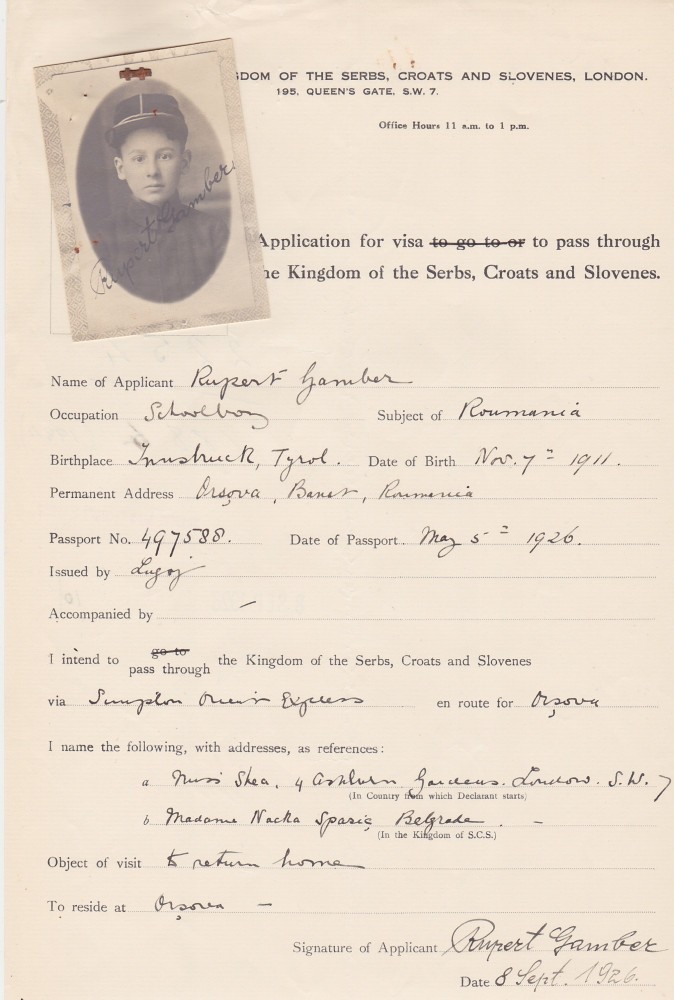 GDOM OF THE SERBS, CROATS AND SLOVENES, LONDON.
195, QUEEN'S GATE, S.W. 7.
Office Hours 11 a.m. to 1 p.m.
Rupert Gamber
Application for visa to go to or to pass through
he Kingdom of the Serbs, Croats and Slovenes.
Name of Applicant Rupert Gamber
Occupation Schoolboy Subject of Roumania
Birthplace Innsbruck, Tyrol. Date of Birth Nov. 7th 1911.
Permanent Address Orşova, Banat, Roumania
Passport No. 497588. Date of Passport May 5th 1926.
Issued by Lugoj
Accompanied by —
I intend to go to pass through the Kingdom of the Serbs, Croats and Slovenes
via Simplon Orient Express en route for Orşova
I name the following, with addresses, as references:
a Miss Shea, 4 Ashburn Gardens. London. S.W. 7
(In Country from which Declarant starts)
b Madame Nacka Spasić Belgrade. —
(In the Kingdom of S.C.S.)
Object of visit to return home
To reside at Orşova —
Signature of Applicant Rupert Gamber
Date 8 Sept. 1926.